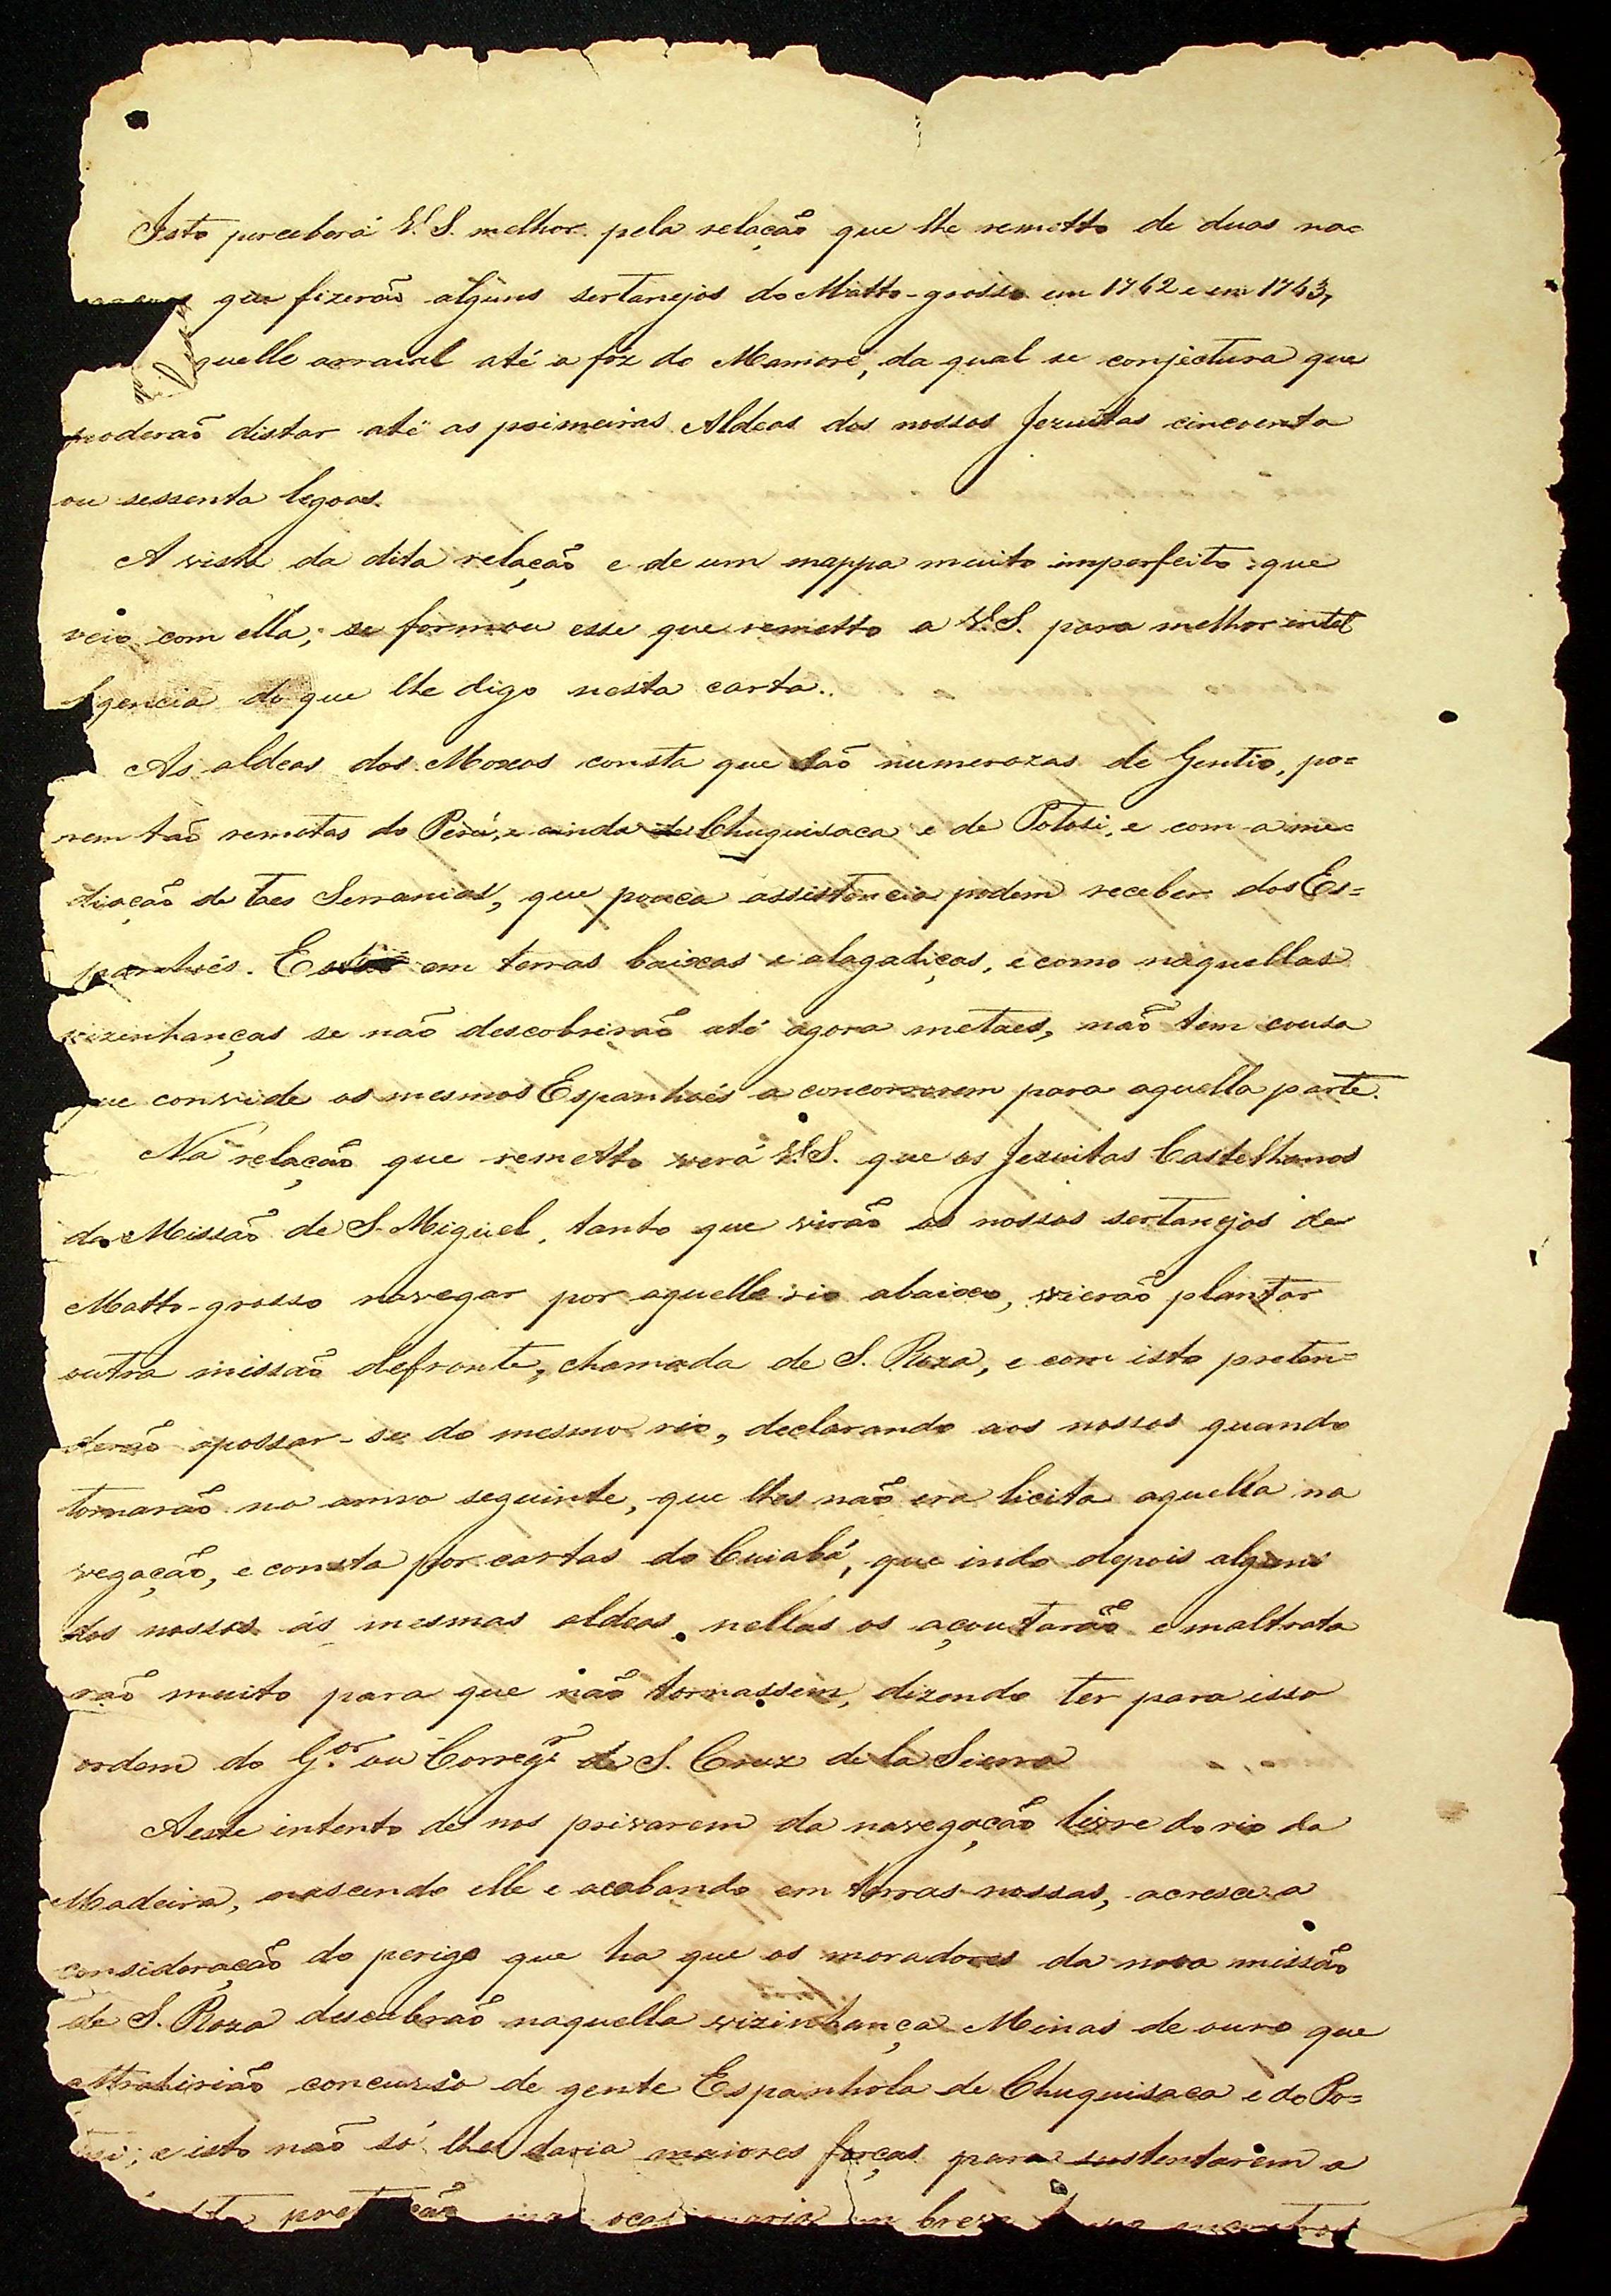 Isto perceberá V. S. melhor pela relação que lhe remetto de duas na=
que fizerão alguns sertanejos do Matto-grosso em 1742 e em 1743,
quelle arraial até a fóz do Mamoré, da qual se conjectura que
poderaõ distar até as primeiras Aldeas dos nossos Jezuitas cincoenta
ou sessenta legoas.
A vista da dita relação e de um mappa muito imperfeito que
veio com ella, se formou esse que remetto a V. S. para melhor intel
ligencia do que lhe digo nesta carta..
As aldeas dos Moxos consta que são numerozas de Gentio, po=
rem taõ remotas do Perú, e ainda de Chuquisaca e de Potosi, e com a me=
diação de taes Serranias, que pouca assistencia podem receber dos Es=
panhoés. Estão em terras baixas e alagadiças, e como naquellas
vizenhanças se naõ descobrirão até agora metaes, naõ tem cousa
que convide os mesmos Espanhoés a concorrerem para aquella parte.
Na relação que remetto verá V. S. que os Jezuitas Castelhanos
da Missaõ de S. Miguel, tanto que virão os nossos sertanejos de
Matto-grosso navegar por aquelle rio abaixo, vierão plantar
outra missaõ defronte, chamada de S. Roza, e com isto preten=
derão apossar-se do mesmo rio, declarando aos nossos quando
tornarão no anno seguinte, que lhes naõ era licita aquella na
vegação, e consta por cartas do Cuiabá, que indo depois alguns
dos nossos ás mesmas aldeas, nellas os açoutarão e maltrata
rão muito para que não tornassem, dizendo ter para isso
ordem do G.or ou Correg.r de S. Cruz de la Sierra
A este intento de nos privarem da navegação livre do rio da
Madeira, nascendo elle e acabando em terras nossas, acresce a
consideração do perigo que ha que os moradores da nova missão
de S. Roza descubrão naquella vizinhança Minas de ouro que
attrahirião concurso de gente Espanhola de Chuquisaca e do Po=
tosi; e isto naõ só lhes daria maiores forças para sustentarem a
breve